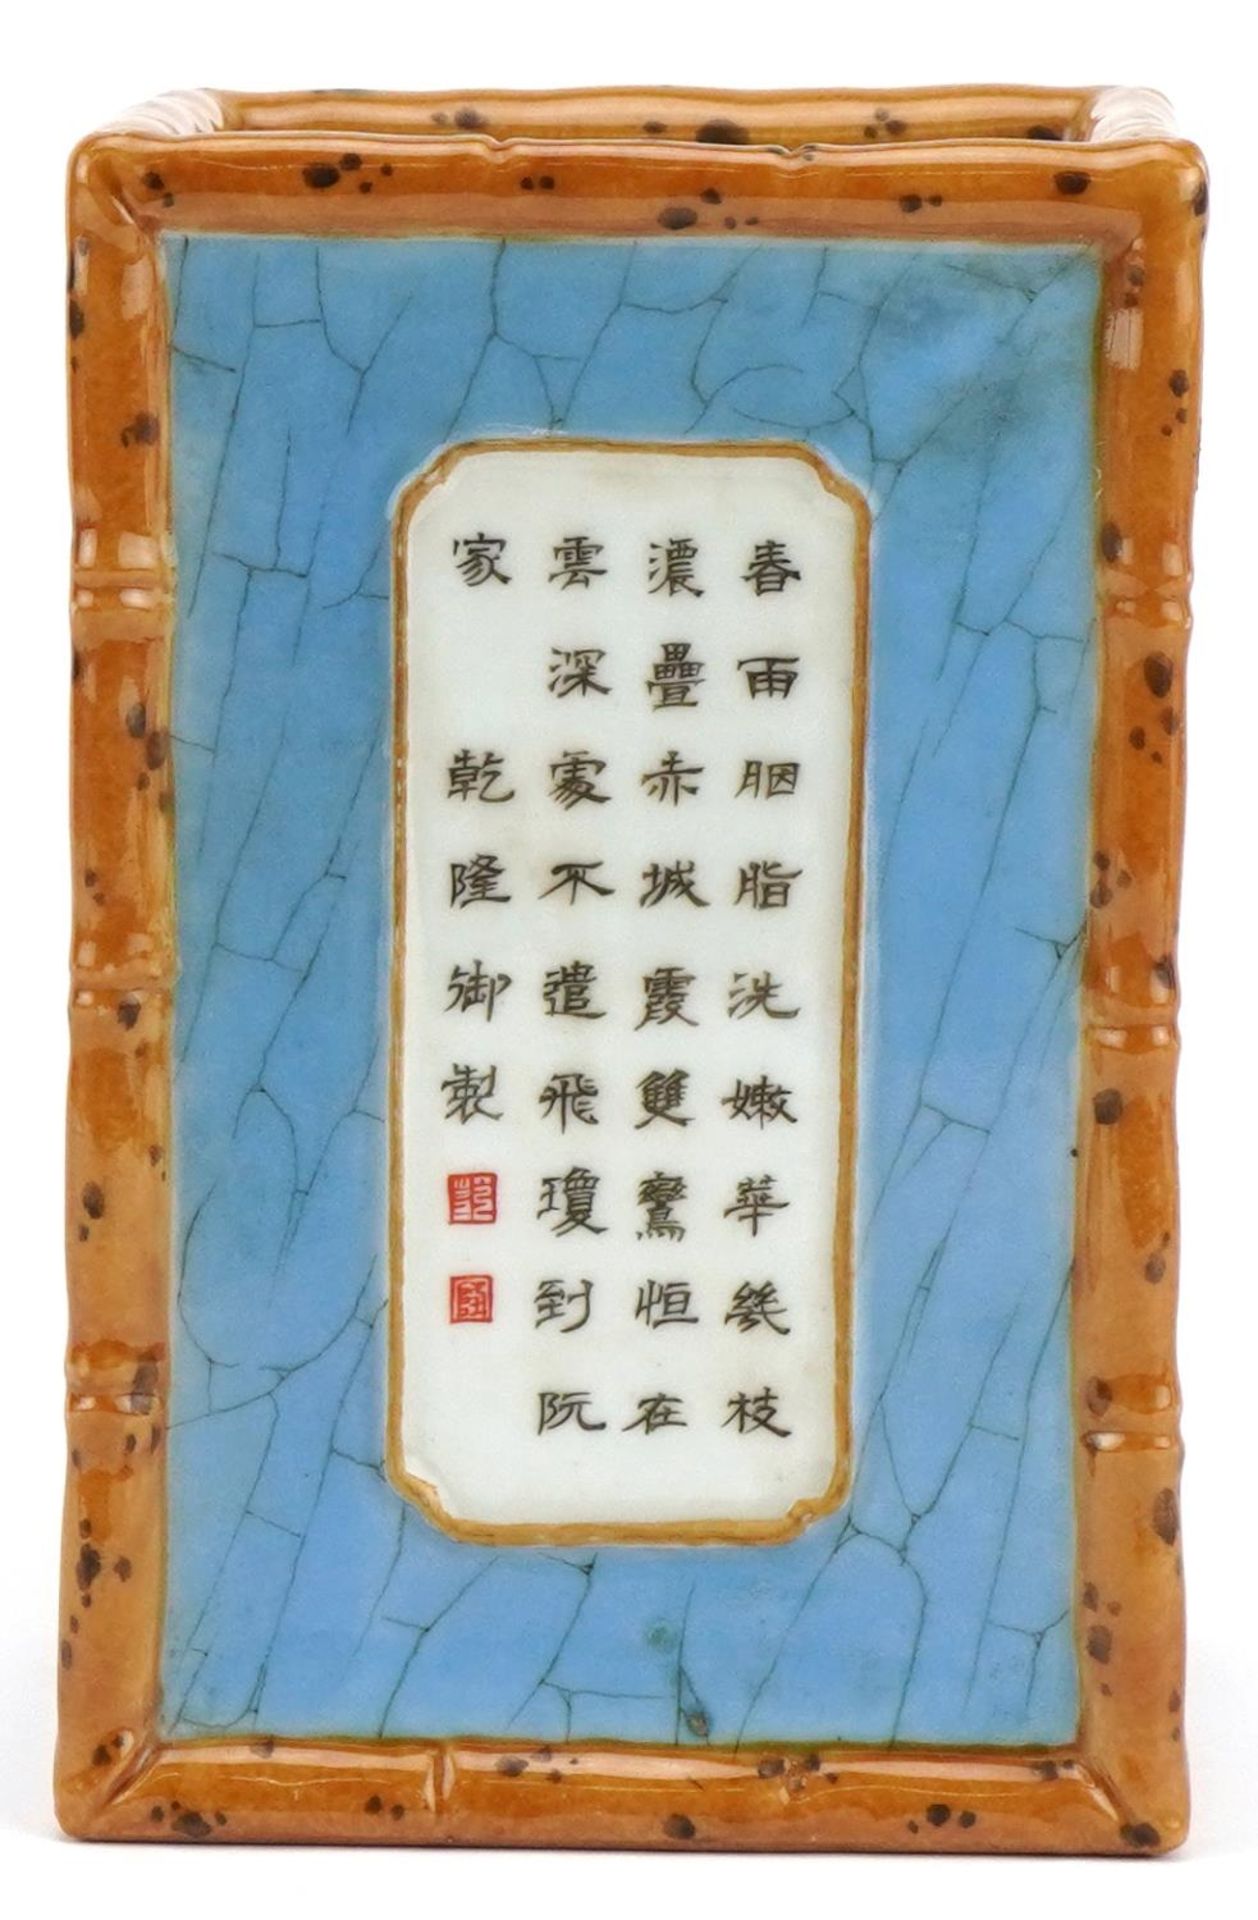 春雨胭脂洗嫩華幾枝
濃疊赤城霞雙鸞恒在
雲深處不遣飛瓊到阮
家 乾隆御製